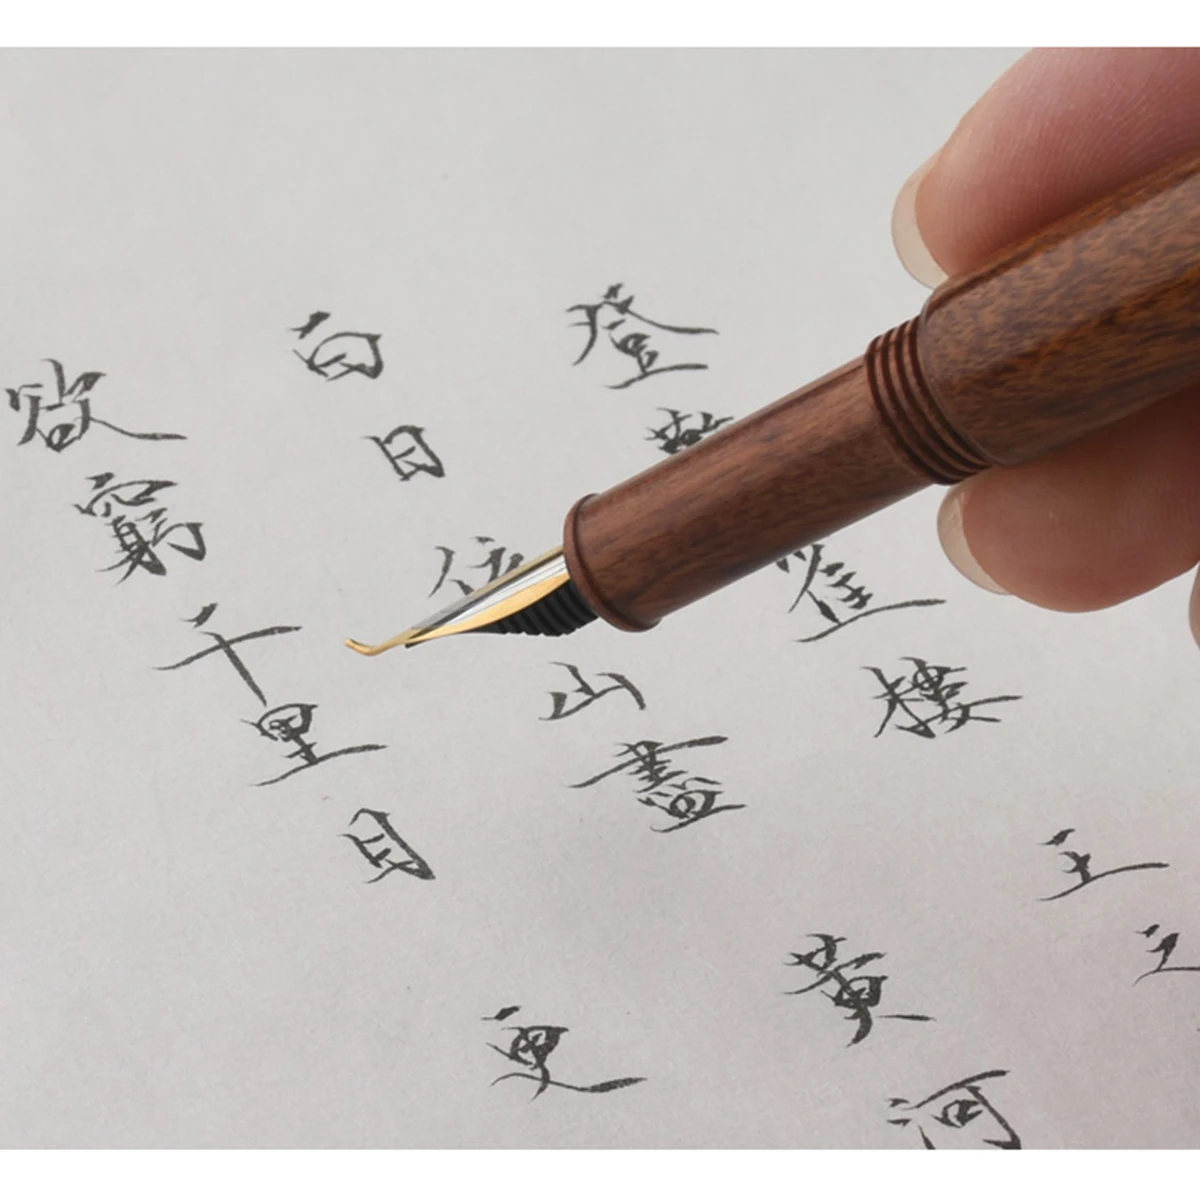 登雀樓 王之
白日依山盡 黃河
欲窮千里目 更